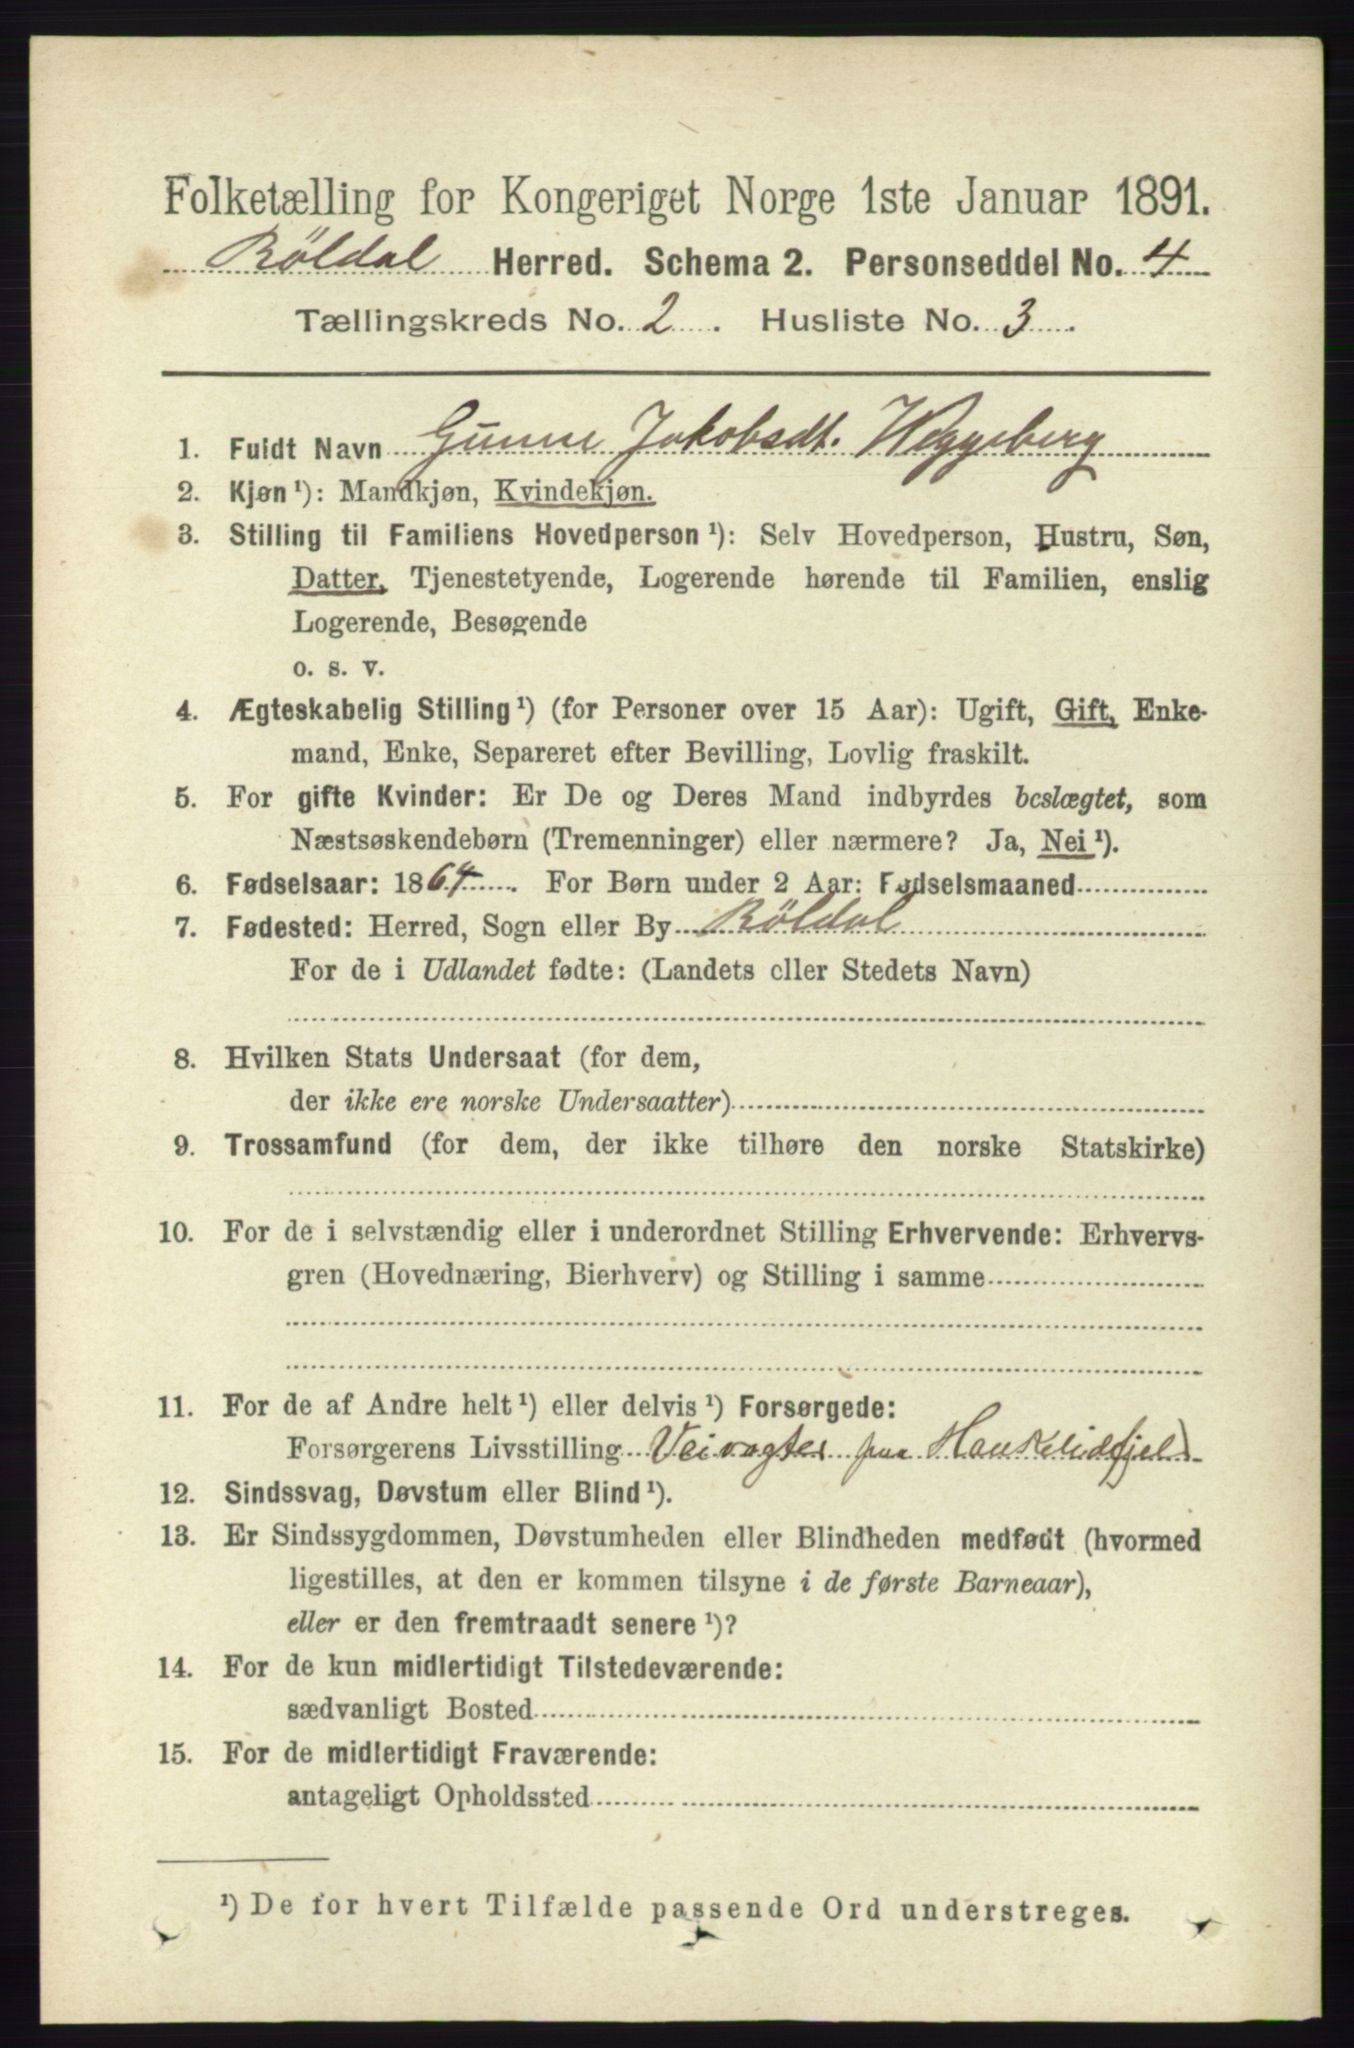 Folketælling for Kongeriget Norge 1ste Januar 1891.
Röldal Herred. Schema 2. Personseddel No. 4
Tællingskreds No. 2. Husliste No. 3.
1. Fuldt Navn Gunne Jakobsdt. Heggeberg
2. Kjøn ¹): Mandkjøn, Kvindekjøn.
3. Stilling til Familiens Hovedperson ¹): Selv Hovedperson, Hustru, Søn,
Datter, Tjenestetyende, Logerende hørende til Familien, enslig
Logerende, Besøgende
o. s. v.
4. Ægteskabelig Stilling ¹) (for Personer over 15 Aar): Ugift, Gift, Enke-
mand, Enke, Separeret efter Bevilling, Lovlig fraskilt.
5. For gifte Kvinder: Er De og Deres Mand indbyrdes beslægtet, som
Næstsøskendebørn (Tremenninger) eller nærmere? Ja, Nei ¹).
6. Fødselsaar: 1864. For Børn under 2 Aar: Fødselsmaaned
7. Fødested: Herred, Sogn eller By Röldal
For de i Udlandet fødte: (Landets eller Stedets Navn)
8. Hvilken Stats Undersaat (for dem,
der ikke ere norske Undersaatter)
9. Trossamfund (for dem, der ikke tilhøre den norske Statskirke)
10. For de i selvstændig eller i underordnet Stilling Erhvervende: Erhvervs-
gren (Hovednæring, Bierhverv) og Stilling i samme
11. For de af Andre helt ¹) eller delvis ¹) Forsørgede:
Forsørgerens Livsstilling Veivogter paa Haukelidfjeld
12. Sindssvag, Døvstum eller Blind ¹).
13. Er Sindssygdommen, Døvstumheden eller Blindheden medfødt (hvormed
ligestilles, at den er kommen tilsyne i de første Barneaar),
eller er den fremtraadt senere ¹)?
14. For de kun midlertidigt Tilstedeværende:
sædvanligt Bosted
15. For de midlertidigt Fraværende:
antageligt Opholdssted
¹) De for hvert Tilfælde passende Ord understreges.